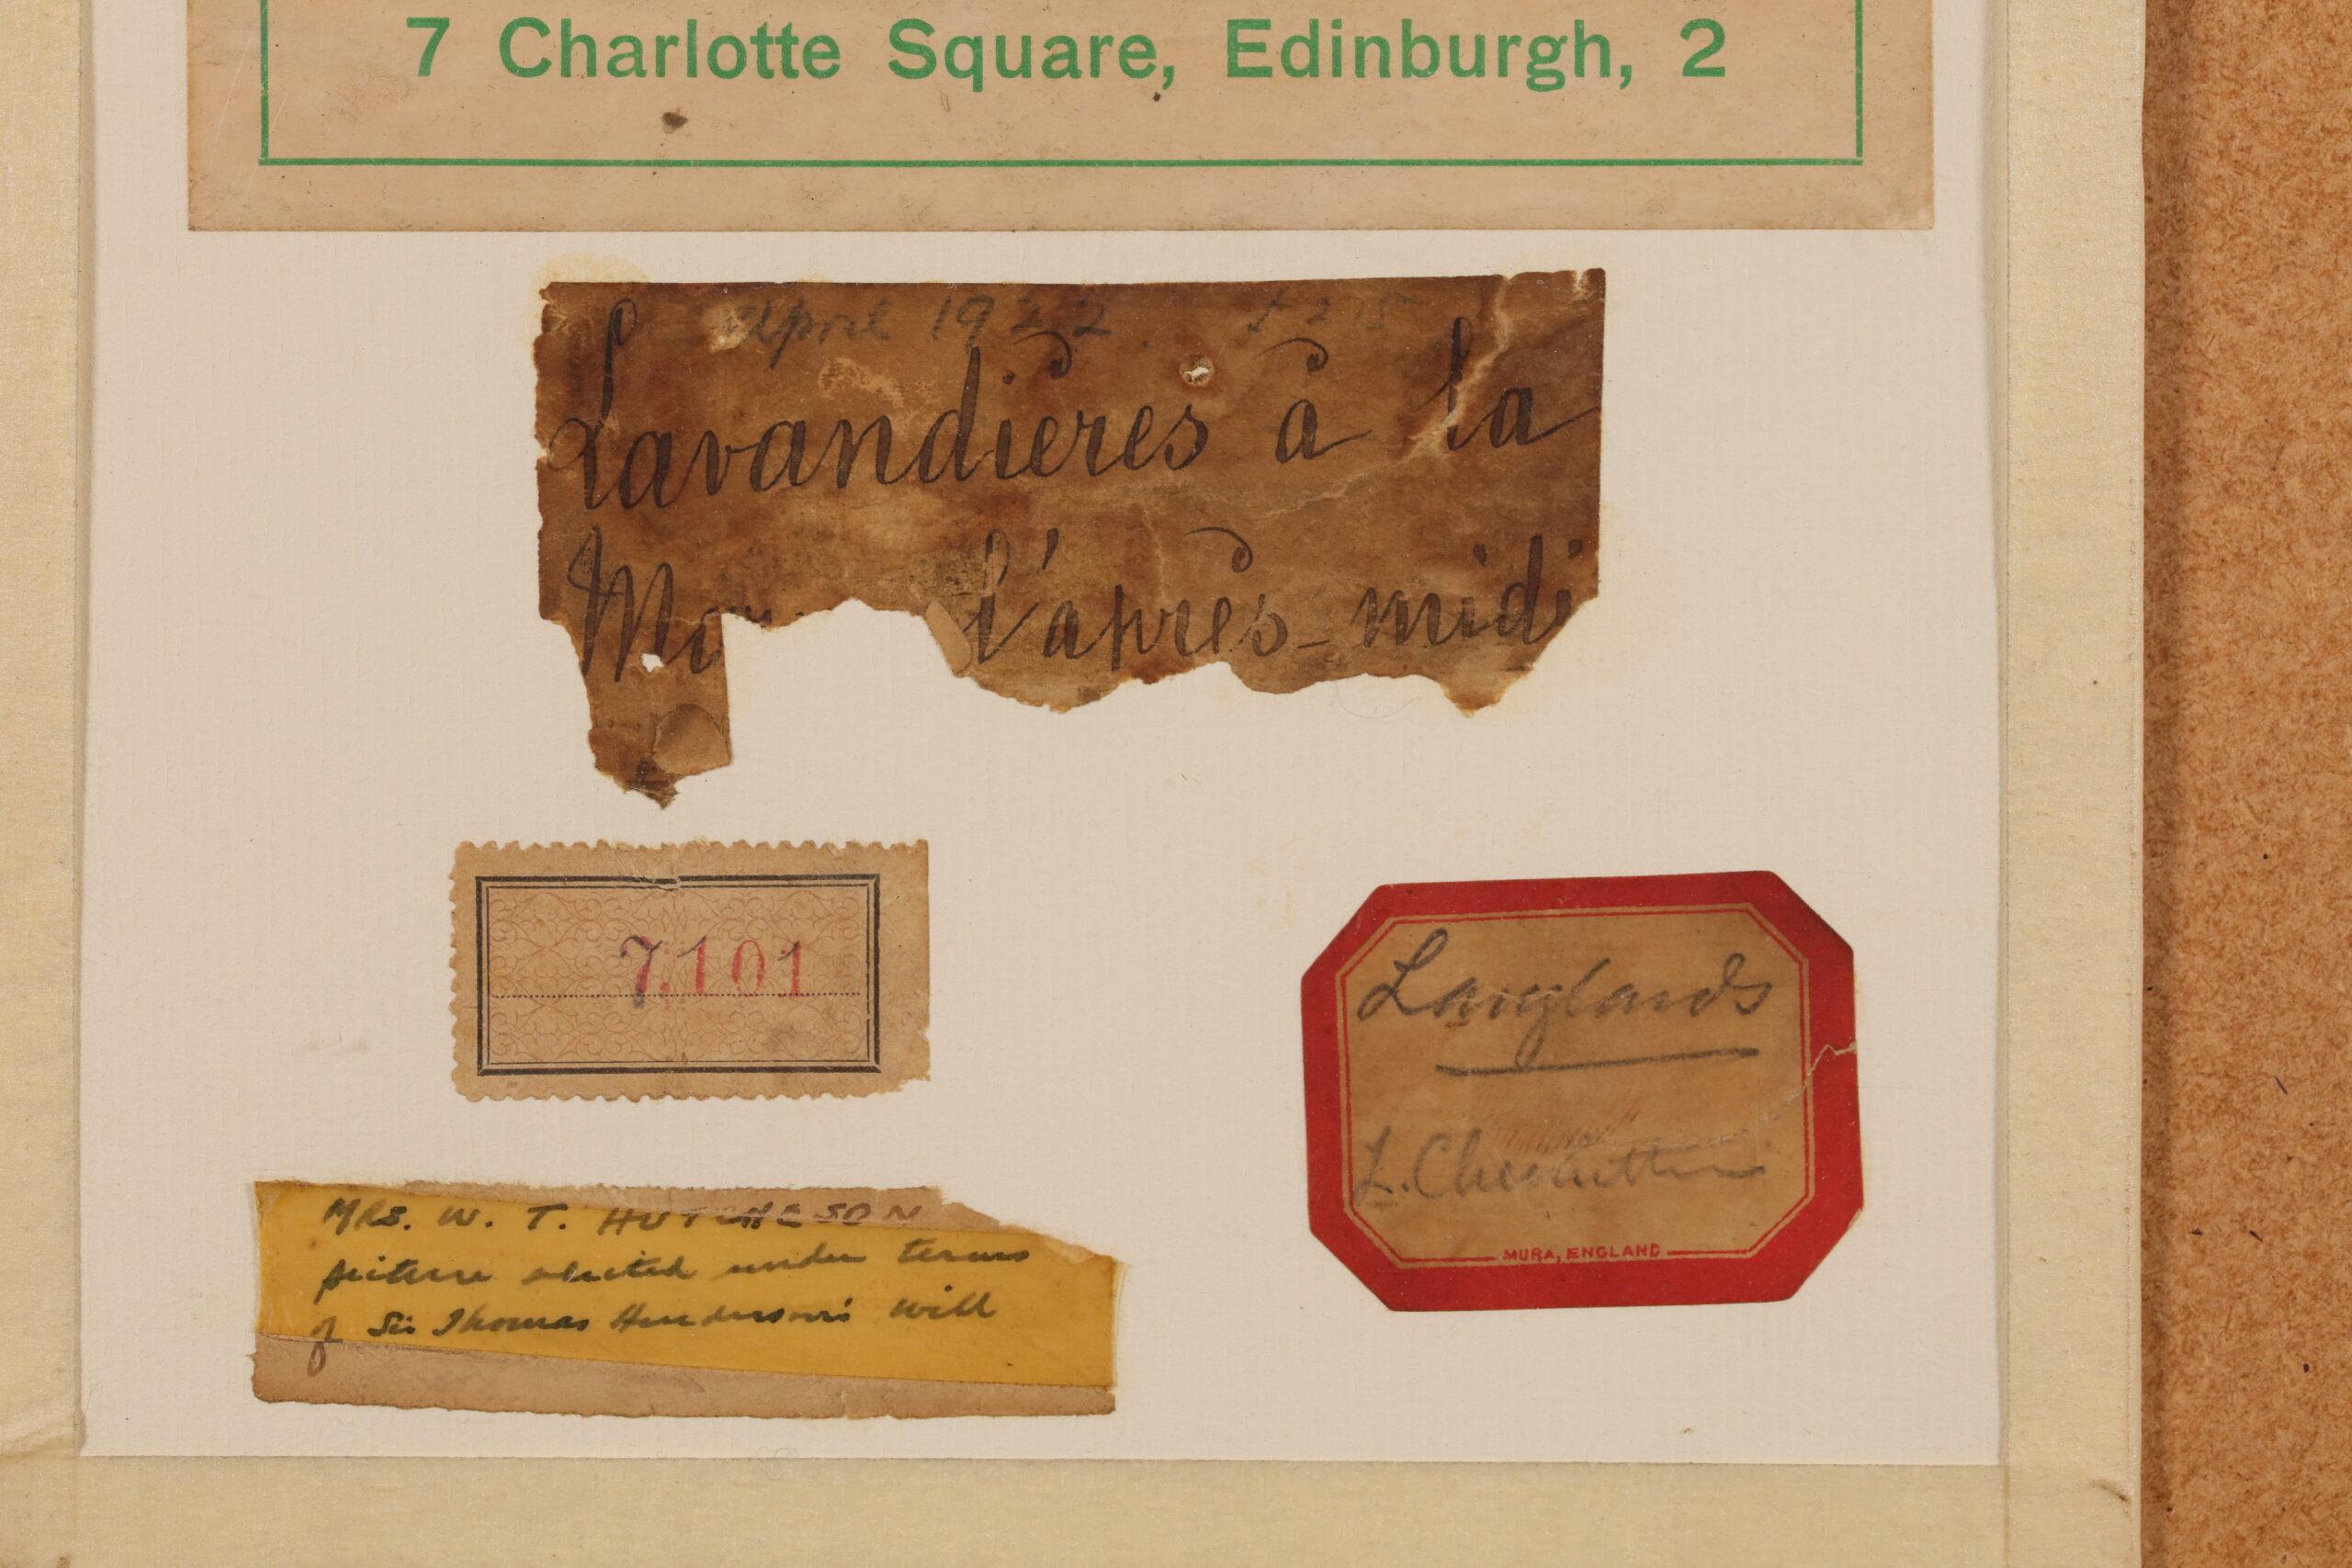 7 Charlotte Square, Edinburgh, 2
April 1922. £275
Lavandières à la
l'après-midi
7.101
Langlands
MURA, ENGLAND
MRS. W. T. HUTCHESON
picture selected under terms
of Sir Thomas Henderson's will